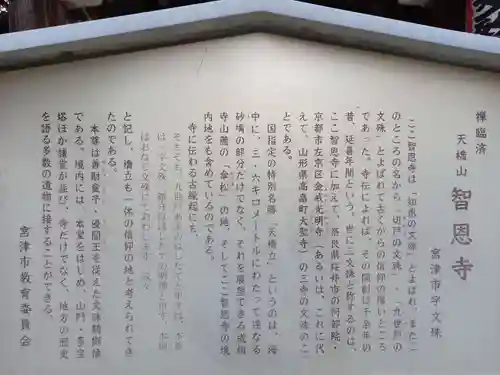 禅臨済
天橋山 智恩寺
宮津市字文殊
ここ智恩寺は「知恵の文殊」とよばれ、またこ
のところの名から「切戸の文殊」・「九世戸の
文殊」とよばれて古くからの信仰の厚いところ
であった。寺伝によれば、その開創は千余年の
昔、延喜年間という。世に三文殊と称するのは、
ここ智恩寺に加えて、奈良県桜井市の阿部院・
京都市左京区金戒光明寺(あるいは、これに代
えて、山形県高畠町大聖寺)の三寺の文殊のこ
とである。
国指定の特別名勝「天橋立」というのは、海
中に、三・六キロメートルにわたって連なる
砂嘴の部分だけでなく、それを展望できる成相
寺山麓の「傘松」の地、そしてここ智恩寺の境
内地をも含めているのである。
寺に伝わる古縁起にも、
そもそも、九世
と記し、橋立も一体の信仰の地と考えられてき
たのである。
本尊は善財童子・優闐王を従えた文殊騎獅像
である。境内には、本堂をはじめ、山門・多宝
塔ほか諸堂が並び、寺だけでなく、地方の歴史
を語る多数の遺物に接することができる。
宮津市教育委員会